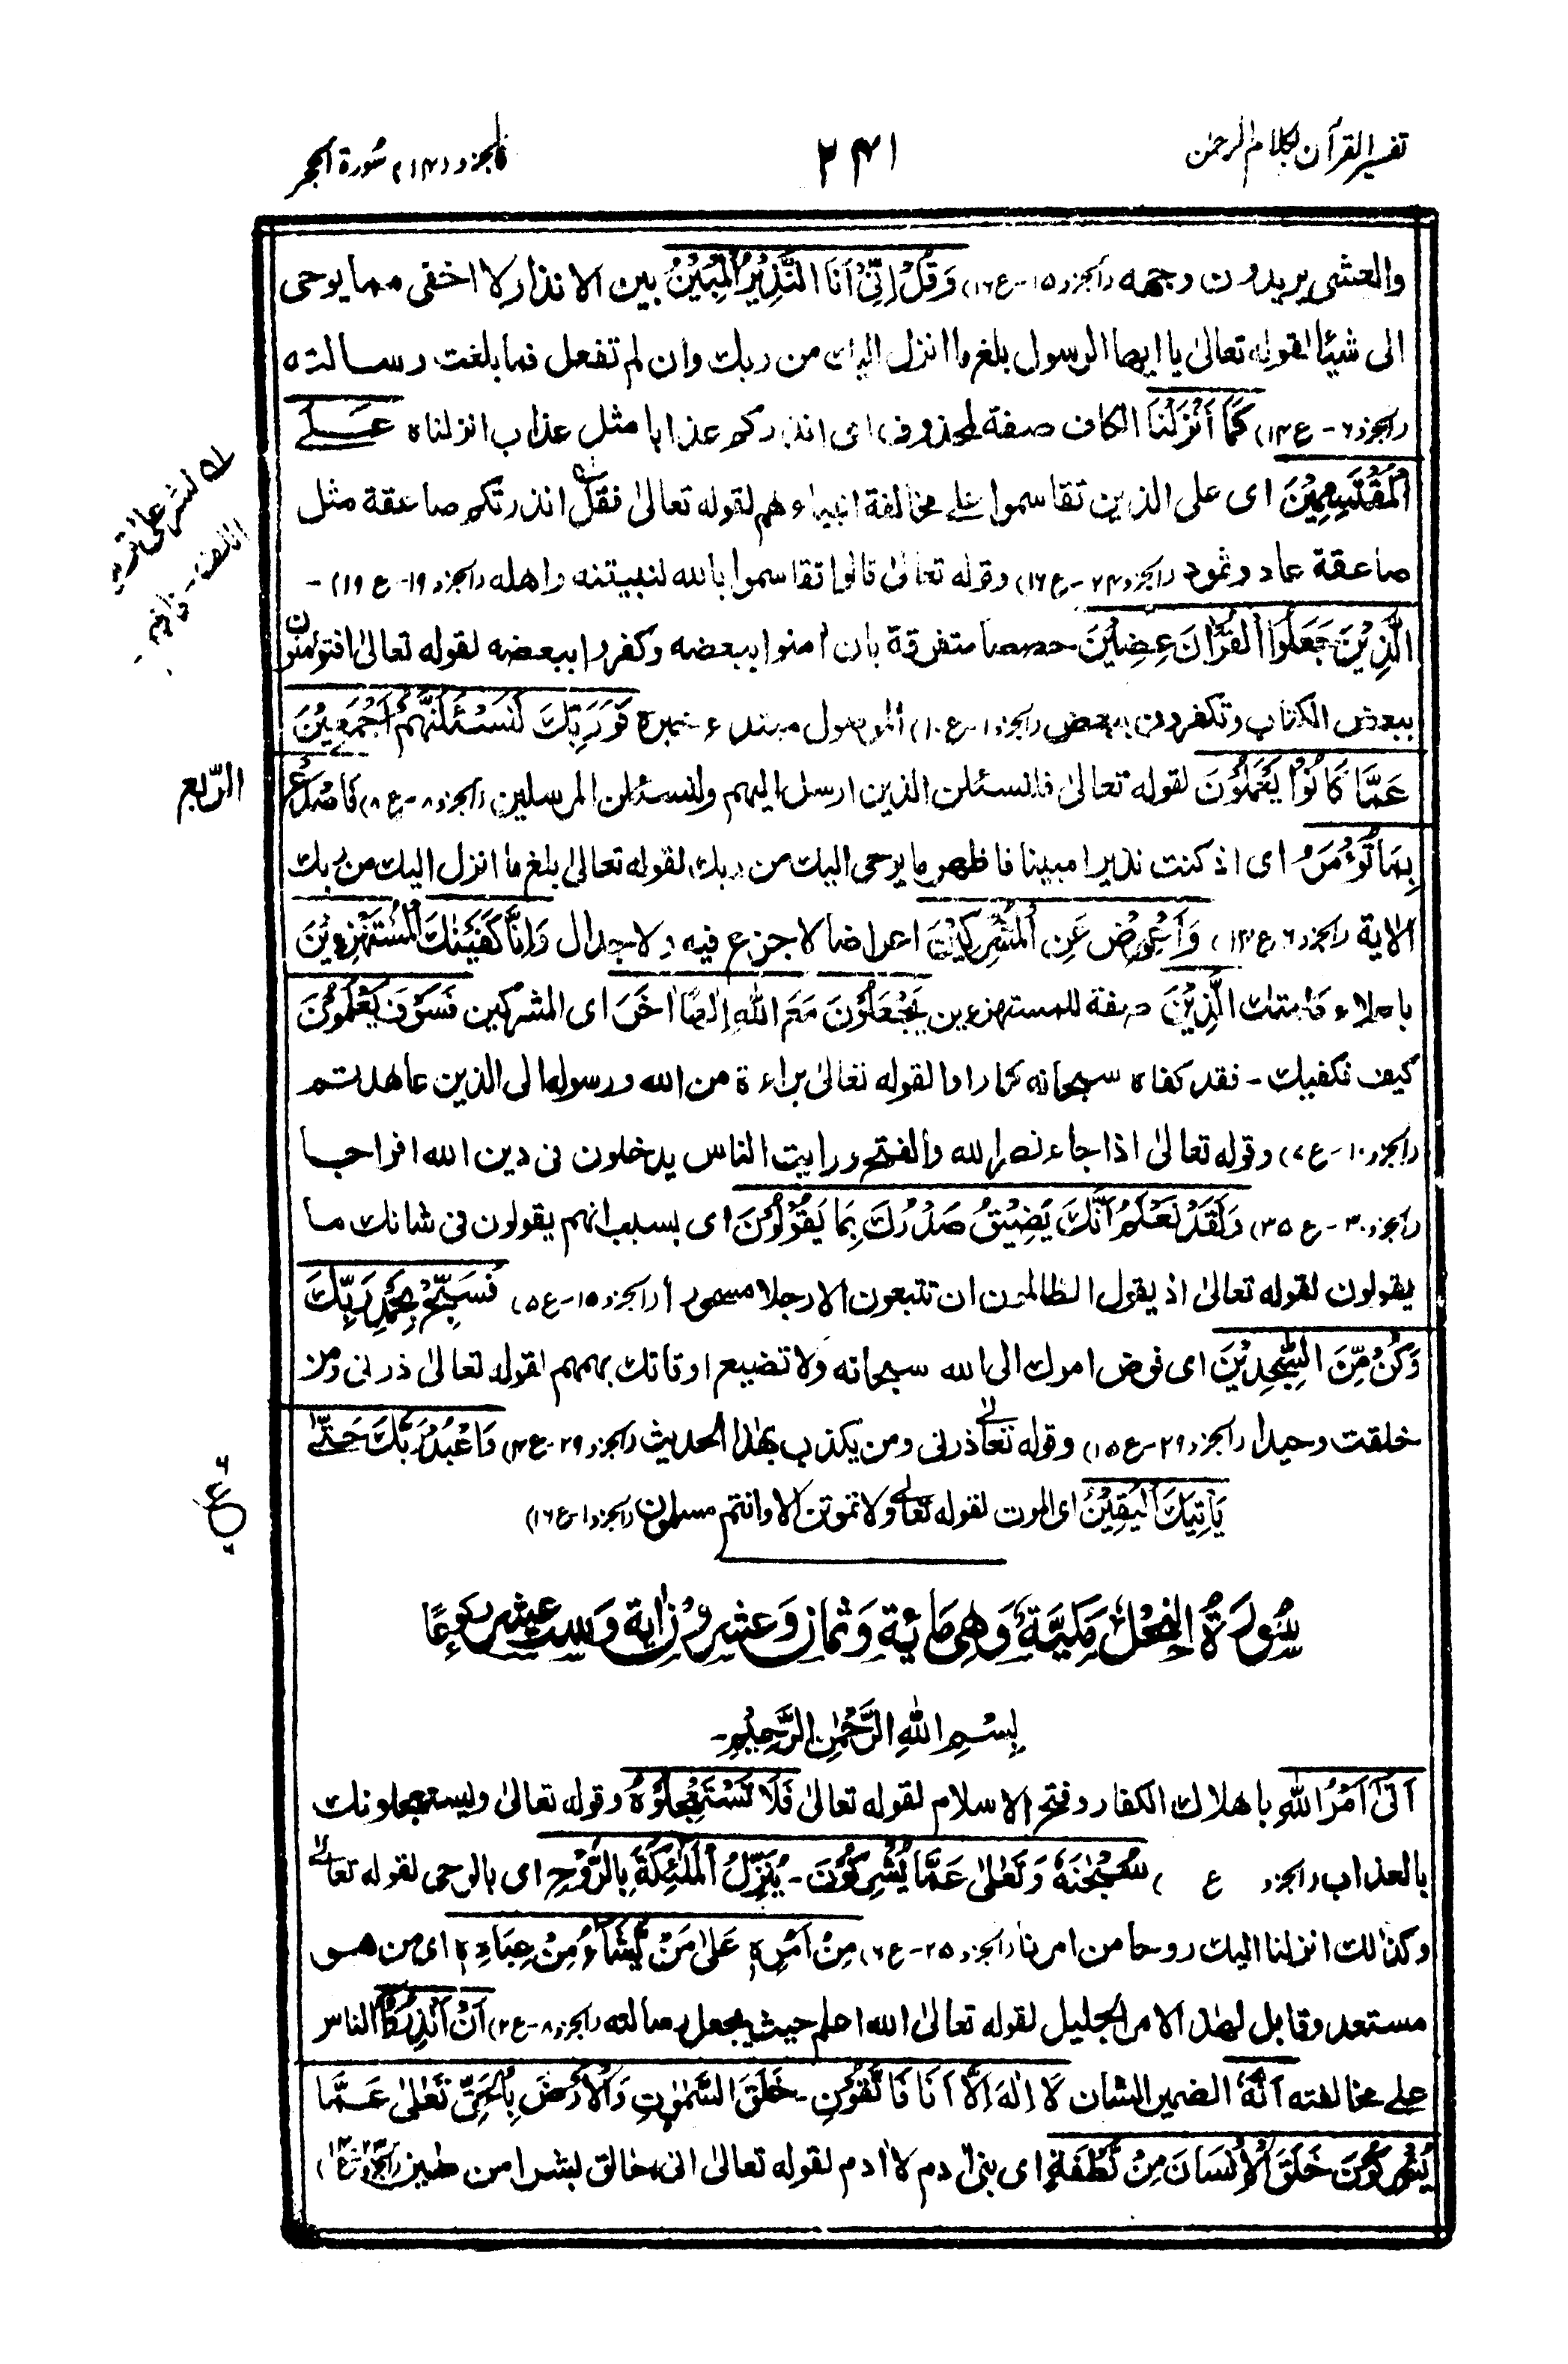 تفسیر القرآن بکلام الرحمن
٢٤١
الجزء (١٤) سُورة الحجر
والعشی یریدون وجهه (الجزء ١٥-ع ١٦) وَقُلْ اِنِّیْ اَنَا النَّذِیْرُ الْمُبِیْنُ بین الانذار لا اخفی مما یوحی
الی شیئا لقوله تعالیٰ یا ایها الرسول بلغ ما انزل الیك من ربك وان لم تفعل فما بلغت رسالته
(الجزء ٦-ع ١٤) كَمَا اَنْزَلْنَا الکاف صفة لمحذوف ای انذركم عذابا مثل عذاب انزلناه عَلَے
الْمُقْتَسِمِیْنَ ای علی الذین تقاسموا علے مخالفة انبیاءهم لقوله تعالیٰ فقل انذرتكم صاعقة مثل
صاعقة عاد وثمود (الجزء ٢٤-ع ١٦) وقوله تعالیٰ قالوا تقاسموا بالله لنبیتنه واهله (الجزء ١٩-ع ١٩)-
الَّذِیْنَ جَعَلُوا الْقُرْاٰنَ عِضِیْنَ حصصا متفرقة بان اٰمنوا ببعضه وکفروا ببعضه لقوله تعالیٰ افتؤمنون
ببعض الکتاب وتکفرون ببعض (الجزء ١-ع ١٠) الموصول مبتدء خبره فَوَرَبِّكَ لَنَسْئَلَنَّهُمْ اَجْمَعِیْنَ
عَمَّا كَانُوْا یَعْمَلُوْنَ لقوله تعالیٰ فلنسئلن الذین ارسل الیهم ولنسئلن المرسلین (الجزء ٨-ع ٨) فَاصْدَعْ
الرّبع
بِمَا تُؤْمَرُ ای اذ کنت نذیرا مبینا فاظهر ما یوحی الیك من ربك لقوله تعالیٰ بلغ ما انزل الیك من ربك
الاٰیة (الجزء ٦ ع ١٤) وَاَعْرِضْ عَنِ الْمُشْرِكِیْنَ اعراضا لا جزع فیه ولا جدال وَاِنَّا كَفَیْنٰكَ الْمُسْتَهْزِءِیْنَ
الَّذِیْنَ صفة للمستهزءین یَجْعَلُوْنَ مَعَ اللهِ اِلٰهًا اٰخَرَ ای المشرکین فَسَوْفَ یَعْلَمُوْنَ
کیف نکفیك- فقد کفاه سبحانه کما ارادا لقوله تعالیٰ براءة من الله ورسوله الی الذین عاهدتم
(الجزء ١٠-ع ٧) وقوله تعالیٰ اذا جاء نصر الله والفتح ورایت الناس یدخلون فی دین الله افواجا
(الجزء ٣٠-ع ٣٥) وَلَقَدْ نَعْلَمُ اَنَّكَ یَضِیْقُ صَدْرُكَ بِمَا یَقُوْلُوْنَ ای بسبب انهم یقولون فی شانك ما
یقولون لقوله تعالیٰ اذ یقول الظالمون ان تتبعون الا رجلا مسحورا (الجزء ١٥-ع ٥) فَسَبِّحْ بِحَمْدِ رَبِّكَ
وَكُنْ مِّنَ السّٰجِدِیْنَ ای فوض امرك الی الله سبحانه ولا تضیع اوقاتك بهمهم لقوله تعالیٰ ذرنی ومن
خلقت وحیدا (الجزء ٢٩-ع ١٥) وقوله تعالیٰ ذرنی ومن یکذب بهٰذا الحدیث (الجزء ٢٩-ع ٤) وَاعْبُدْ رَبَّكَ حَتّٰے
یَاْتِیَكَ الْیَقِیْنُ ای الموت لقوله تعالےٰ ولا تموتن الا وانتم مسلمون (الجزء ١-ع ١٦)
سُورَةُ النحل مَكِیَّةٌ وَهِی مَائة وَثمان وَعشرون اٰیة وَست عشر رکوعًا
بِسْمِ اللهِ الرَّحْمٰنِ الرَّحِیْمِ-
اَتٰۤی اَمْرُ اللهِ باهلاك الکفار وفتح الاسلام لقوله تعالیٰ فَلَا تَسْتَعْجِلُوْهُ وقوله تعالیٰ ویستعجلونك
بالعذاب (الجزء ع ) سُبْحٰنَهٗ وَتَعٰلٰی عَمَّا یُشْرِكُوْنَ- یُنَزِّلُ الْمَلٰٓئِكَةَ بِالرُّوْحِ ای بالوحی لقوله تعالےٰ
وکذالك انزلنا الیك روحا من امرنا (الجزء ٢٥-ع ٦) مِنْ اَمْرِهٖ عَلٰی مَنْ یَّشَآءُ مِنْ عِبَادِهٖ ای من هو
مستعد وقابل لهٰذا الامر الجلیل لقوله تعالیٰ الله اعلم حیث یجعل رسالته (الجزء ٨-ع ٢) اَنْ اَنْذِرُوْا الناس
علے مخالفته اَنَّهٗ الضمیر للشان لَا اِلٰهَ اِلَّا اَنَا فَاتَّقُوْنِ- خَلَقَ السَّمٰوٰتِ وَالْاَرْضَ بِالْحَقِّ تَعٰلٰی عَمَّا
یُشْرِكُوْنَ خَلَقَ الْاِنْسَانَ مِنْ نُّطْفَةٍ ای بنی اٰدم لا اٰدم لقوله تعالیٰ انی خالق بشرا من طین